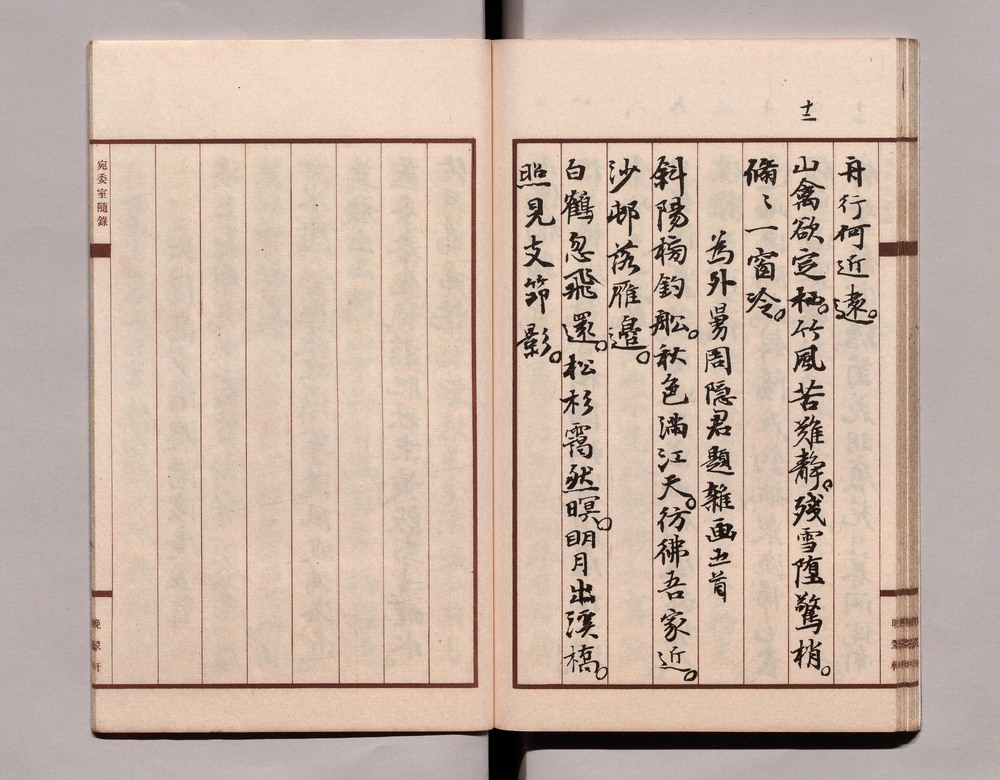 十二
舟行何近遠。
山禽欲定栖。竹風苦難静。殘雪墮驚梢。
翛〻一窗冷。
為外舅周隐君題雜画五首
斜陽䅭釣船。秋色滿江天。彷彿吾家近。
沙邨落雁邊。
白鶴忽飛還。松杉靄然暝。明月出溪橋。
照見支節影。
宛委室隨錄
晚翠軒